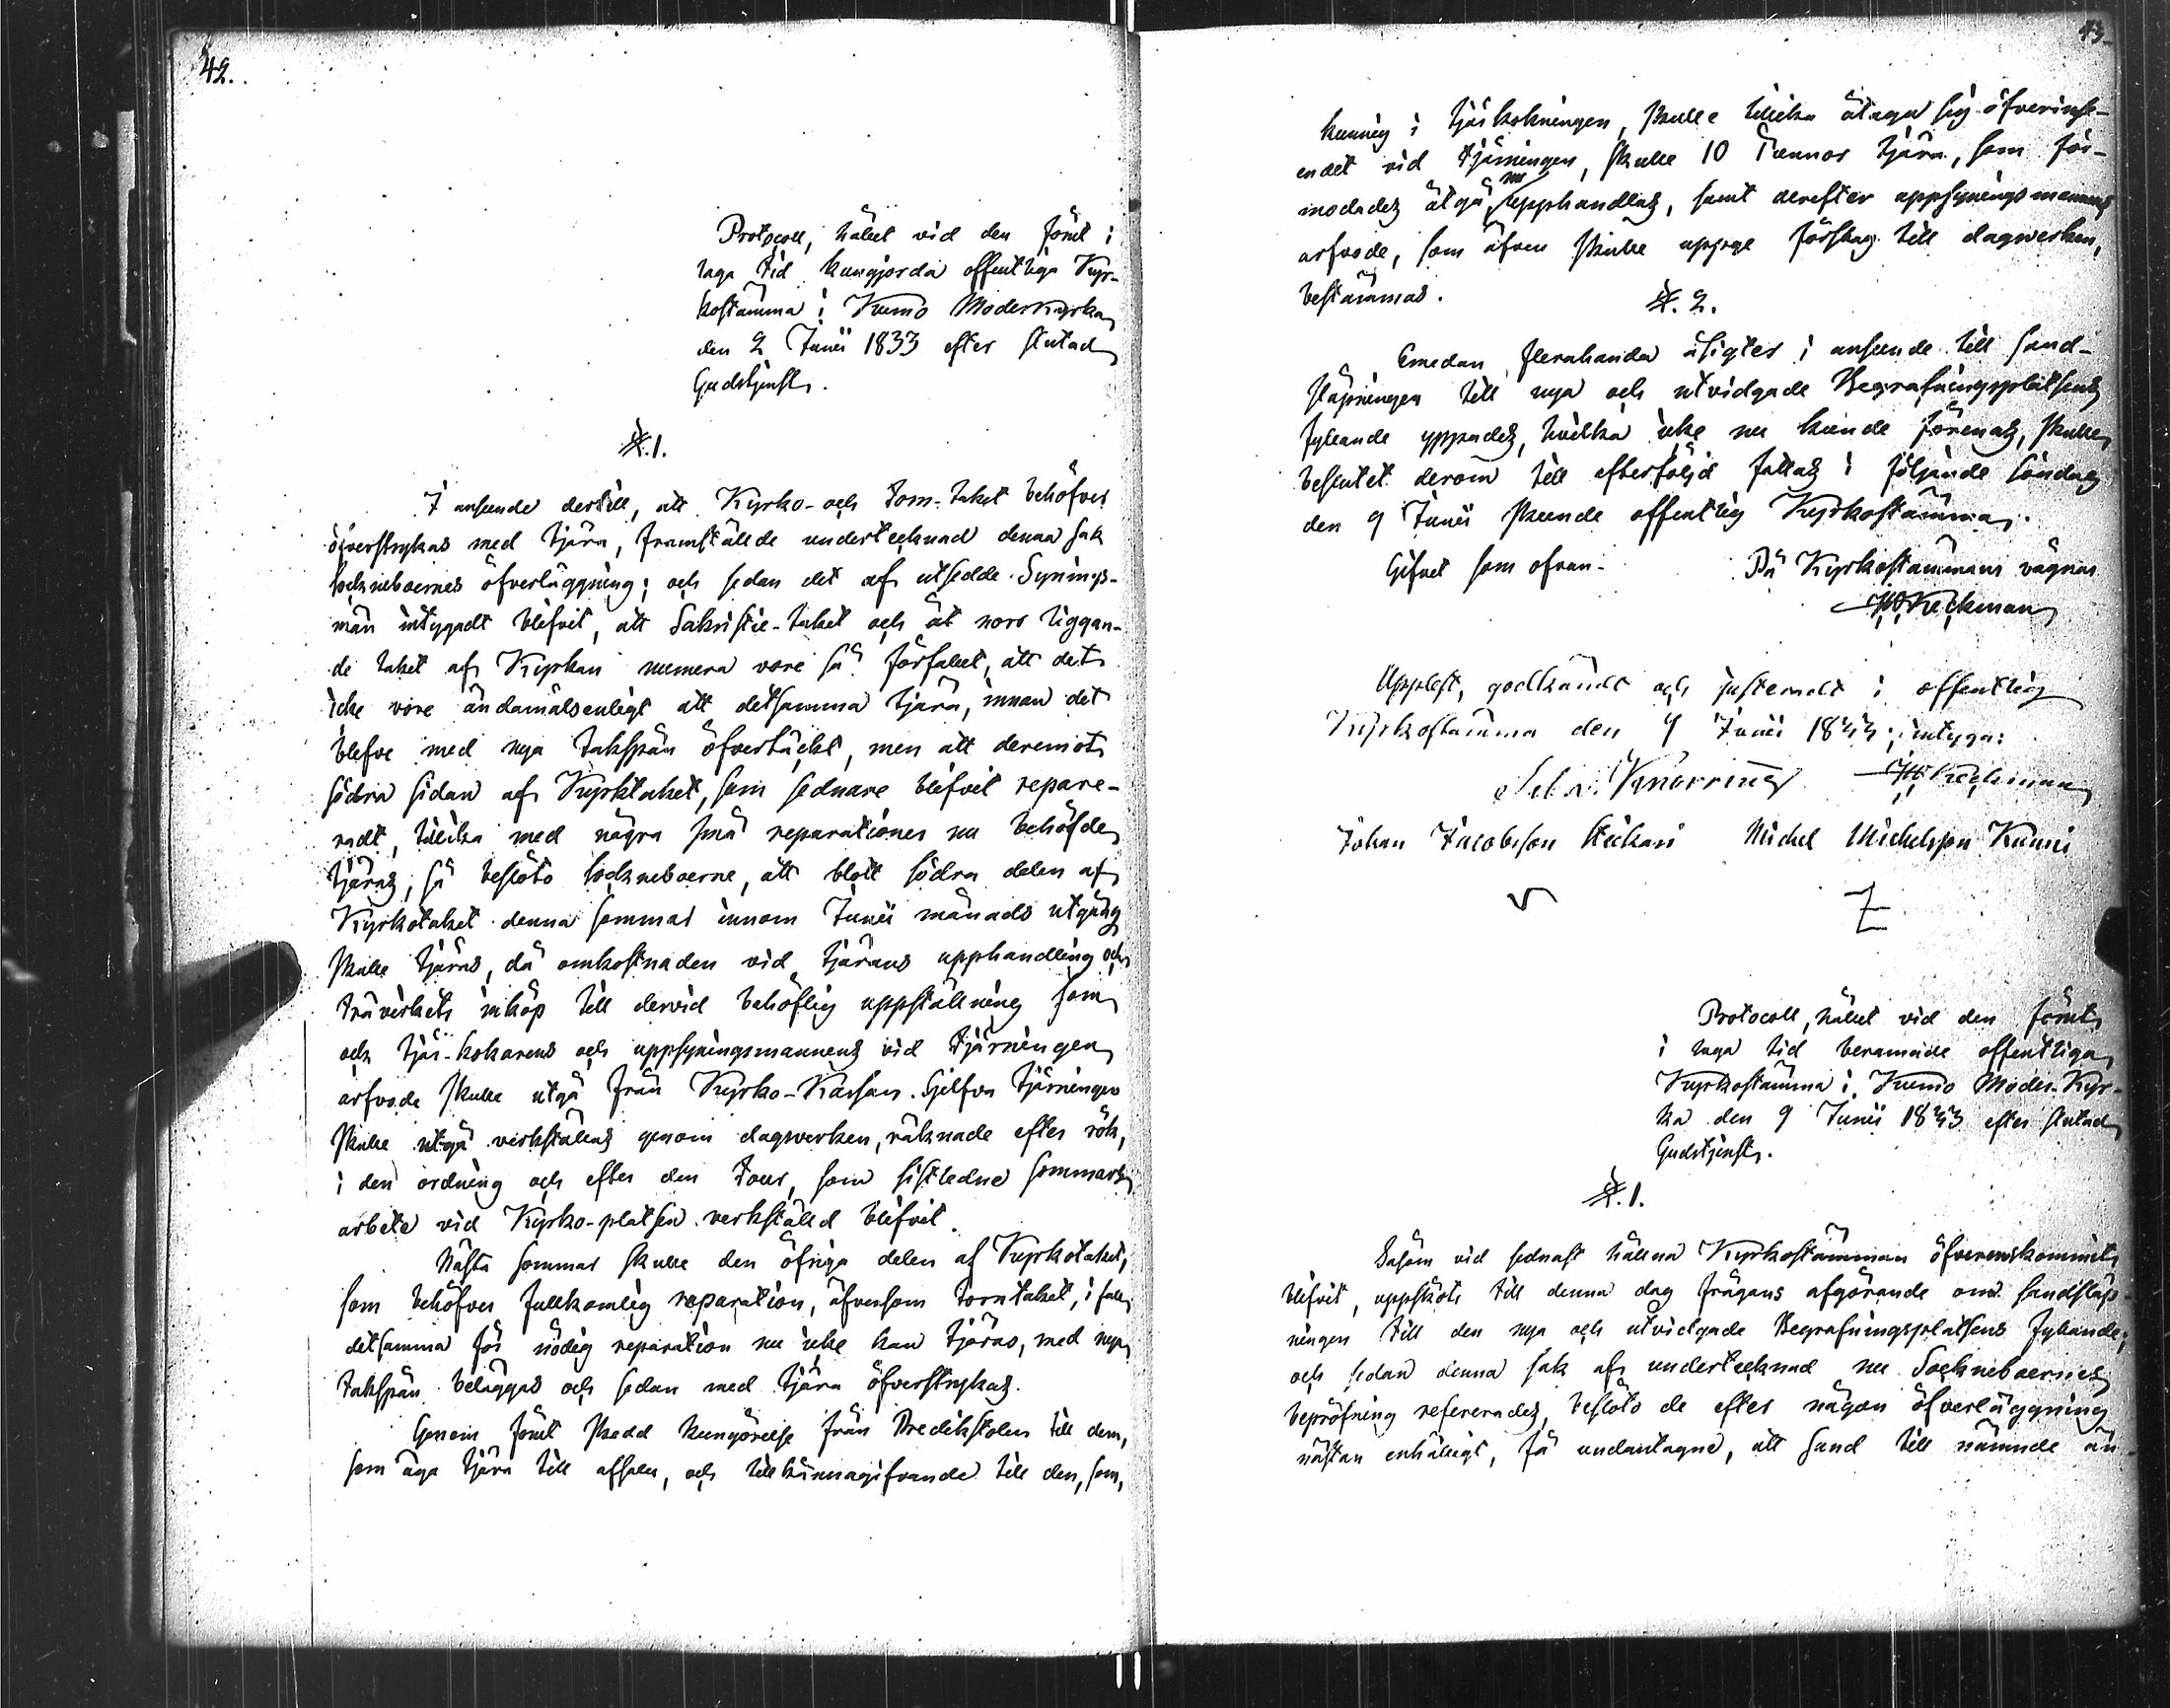 42.
Protocoll, hållet vid den förut i
laga tid kungjorda offentliga Kyr-
kostämma i Kumo Moderkyrka
den 2 Junii 1833 efter slutad
Gudstjenst.
§. 1.
I anseende dertill, att Kyrko- och Torn-taket behöfver
öfverstrykas med tjära, framställde undertecknad denna sak
Sockneboernes öfverläggning; och sedan det af utsedde Synings-
män intygadt blifvit, att Sakristie-taket och åt norr liggan-
de taket af Kyrkan numera vore så förfallet, att det
icke vore ändamålsenligt att detsamma tjära, innan det
blefve med nya takspån öfvertäckt, men att deremot
södra sidan af Kyrktaket, som sednare blifvit repare-
radt, tillika med några små reparationer nu behöfde
tjäras; så beslöto Sockneboerne, att blott södra delen af
Kyrkotaket denna sommar innom Junii månads utgång
skulle tjäras, då omkostnaden vid tjärans upphandling och
trävirkets inköp till dervid behöflig uppställning som
och tjär-kokarens och uppsyningsmannens vid tjärningen
arfvode skulle utgå från Kyrko-Kassan. Sjelfva tjärningen
skulle utgå verkställas genom dagsverken, räknade efter rök,
i den ordning och efter den tour, som sistledne sommars
arbete vid Kyrko-platsen verkställd blifvit.
Nästa sommar skulle den öfriga delen af Kyrkotaket,
som behöfver fullkomlig reparation, äfvensom torntaket, i fall
detsamma för nödig reparation nu icke kan tjäras, med nya
takspån beläggas och sedan med tjära öfverstrykas.
Genom förut skedd kungörelse från Predikstolen till dem,
som äga tjära till afsalu, och tillkännagifvande till den, som,
43.
kunnig i tjärkokningen, skulle tillika åtaga sig öfverinse-
endet vid tjärningen, skulle 10 Tunnor tjära, som för-
modades åtgå, nu upphandlas, samt derefter uppsyningsmannens
arfvode, som äfven skulle uppge förslag till dagsverken,
bestämmas.
§. 2.
Emedan flerahanda åsigter i anseende till sand-
släpningen till nya och utvidgade Begrafningsplatsens
fyllande yppades, hvilka icke nu kunde förenas, skulle
beslutet derom till efterföljd fattas i följande söndag
den 9 Junii skeende offentlig Kyrkostämma.
Gifvet som ofvan.
På Kyrkostämmans vägnar
Keckman
Upplest, godkändt och justeradt i offentlig
Kyrkostämma den 9 Junii 1833; intyga:
Knorring Keckman
Johan Jacobsson Michel Michelsson
Protocoll, hållet vid den förut
i laga tid beramade offentliga
Kyrkostämma i Kumo Moder-Kyr-
ka den 9 Junii 1833 efter slutad
Gudstjenst.
§. 1.
Såsom vid sednast hållna Kyrkostämman öfverenskommit
blifvit, uppsköts till denna dag frågans afgörande om sandsläp-
ningen till den nya och utvidgade Begrafningsplatsens fyllande;
och sedan denna sak af undertecknad nu Sockneboernes
bepröfning refererades, beslöto de efter någon öfverläggning
nästan enhälligt, få undantagne, att sand till nämnde än-